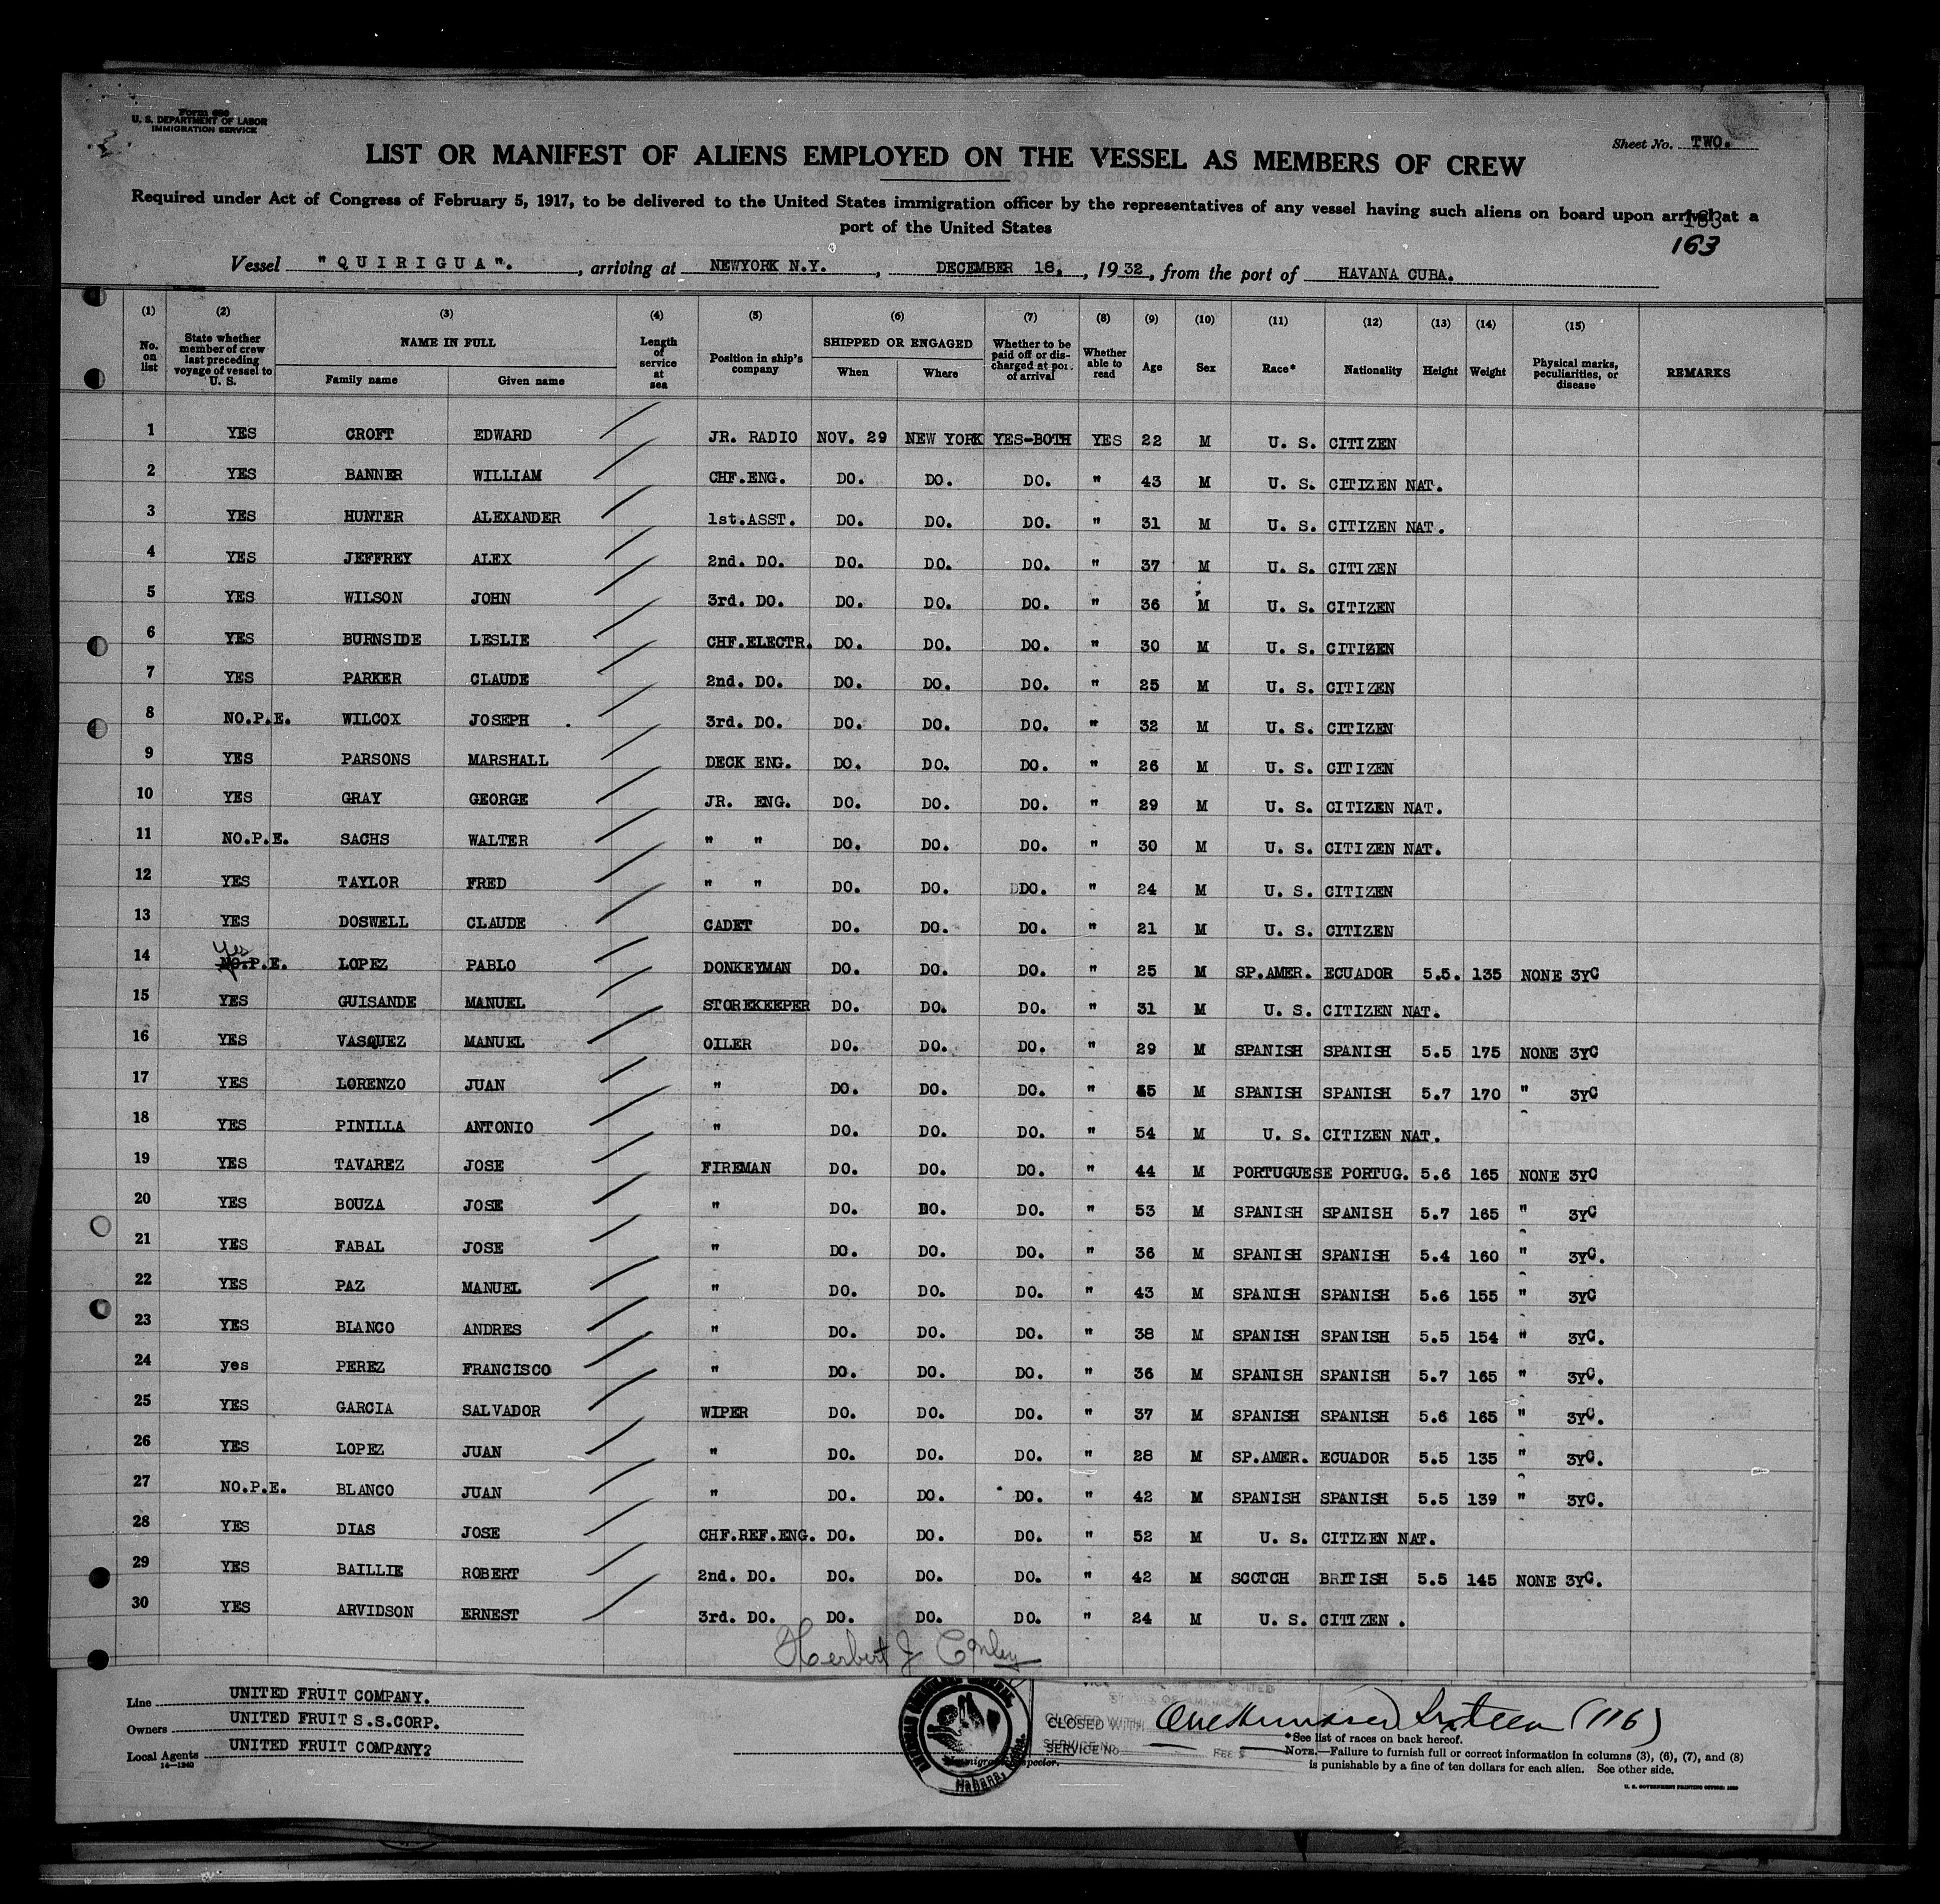 Form 689
U. S. DEPARTMENT OF LABOR
IMMIGRATION SERVICE
Sheet No. TWO.
LIST OR MANIFEST OF ALIENS EMPLOYED ON THE VESSEL AS MEMBERS OF CREW
Required under Act of Congress of February 5, 1917, to be delivered to the United States immigration officer by the representatives of any vessel having such aliens on board upon arrival at a
port of the United States
163
163
Vessel "QUIRIGUA". , arriving at NEWYORK N.Y. , DECEMBER 18, , 1932, from the port of HAVANA CUBA.
(1) (2) (3) (4) (5) (6) (7) (8) (9) (10) (11) (12) (13) (14) (15)
No. on list State whether member of crew last preceding voyage of vessel to U. S. NAME IN FULL Family name Given name Length of service at sea Position in ship's company SHIPPED OR ENGAGED When Where Whether to be paid off or discharged at port of arrival Whether able to read Age Sex Race* Nationality Height Weight Physical marks, peculiarities, or disease REMARKS
1 YES CROFT EDWARD JR. RADIO NOV. 29 NEW YORK YES-BOTH YES 22 M U. S. CITIZEN
2 YES BANNER WILLIAM CHF.ENG. DO. DO. DO. " 43 M U. S. CITIZEN NAT.
3 YES HUNTER ALEXANDER 1st.ASST. DO. DO. DO. " 31 M U. S. CITIZEN NAT.
4 YES JEFFREY ALEX 2nd. DO. DO. DO. DO. " 37 M U. S. CITIZEN
5 YES WILSON JOHN 3rd. DO. DO. DO. DO. " 36 M U. S. CITIZEN
6 YES BURNSIDE LESLIE CHF.ELECTR. DO. DO. DO. " 30 M U. S. CITIZEN
7 YES PARKER CLAUDE 2nd. DO. DO. DO. DO. " 25 M U. S. CITIZEN
8 NO.P.E. WILCOX JOSEPH . 3rd. DO. DO. DO. DO. " 32 M U. S. CITIZEN
9 YES PARSONS MARSHALL DECK ENG. DO. DO. DO. " 26 M U. S. CITIZEN
10 YES GRAY GEORGE JR. ENG. DO. DO. DO. " 29 M U. S. CITIZEN NAT.
11 NO.P.E. SACHS WALTER " " DO. DO. DO. " 30 M U. S. CITIZEN NAT.
12 YES TAYLOR FRED " " DO. DO. DDO. " 24 M U. S. CITIZEN
13 YES DOSWELL CLAUDE CADET DO. DO. DO. " 21 M U. S. CITIZEN
Yes
14 NO.P.E. LOPEZ PABLO DONKEYMAN DO. DO. DO. " 25 M SP.AMER. ECUADOR 5.5. 135 NONE 3YC
15 YES GUISANDE MANUEL STOREKEEPER DO. DO. DO. " 31 M U. S. CITIZEN NAT.
16 YES VASQUEZ MANUEL OILER DO. DO. DO. " 29 M SPANISH SPANISH 5.5 175 NONE 3YC
17 YES LORENZO JUAN " DO. DO. DO. " 45 M SPANISH SPANISH 5.7 170 " 3YC
18 YES PINILLA ANTONIO " DO. DO. DO. " 54 M U. S. CITIZEN NAT.
19 YES TAVAREZ JOSE FIREMAN DO. DO. DO. " 44 M PORTUGUESE PORTUG. 5.6 165 NONE 3YC
20 YES BOUZA JOSE " DO. DO. DO. " 53 M SPANISH SPANISH 5.7 165 " 3YC
21 YES FABAL JOSE " DO. DO. DO. " 36 M SPANISH SPANISH 5.4 160 " 3YC.
22 YES PAZ MANUEL " DO. DO. DO. " 43 M SPANISH SPANISH 5.6 155 " 3YC
23 YES BLANCO ANDRES " DO. DO. DO. " 38 M SPANISH SPANISH 5.5 154 " 3YC.
24 yes PEREZ FRANCISCO " DO. DO. DO. " 36 M SPANISH SPANISH 5.7 165 " 3YC.
25 YES GARCIA SALVADOR WIPER DO. DO. DO. " 37 M SPANISH SPANISH 5.6 165 " 3YC.
26 YES LOPEZ JUAN " DO. DO. DO. " 28 M SP.AMER. ECUADOR 5.5 135 " 3YC.
27 NO.P.E. BLANCO JUAN " DO. DO. DO. " 42 M SPANISH SPANISH 5.5 139 " 3YC.
28 YES DIAS JOSE CHF.REF.ENG. DO. DO. DO. " 52 M U. S. CITIZEN NAT.
29 YES BAILLIE ROBERT 2nd. DO. DO. DO. DO. " 42 M SCOTCH BRITISH 5.5 145 NONE 3YC.
30 YES ARVIDSON ERNEST 3rd. DO. DO. DO. DO. " 24 M U. S. CITIZEN .
Herbert J Conley
Line UNITED FRUIT COMPANY.
Owners UNITED FRUIT S.S.CORP.
Local Agents UNITED FRUIT COMPANY?
14—1240
Immigrant Inspector.
Habana,
CLOSED WITH One Hundred Sixteen (116)
SERVICE No FEE $
*See list of races on back hereof.
NOTE.—Failure to furnish full or correct information in columns (3), (6), (7), and (8)
is punishable by a fine of ten dollars for each alien. See other side.
U. S. GOVERNMENT PRINTING OFFICE: